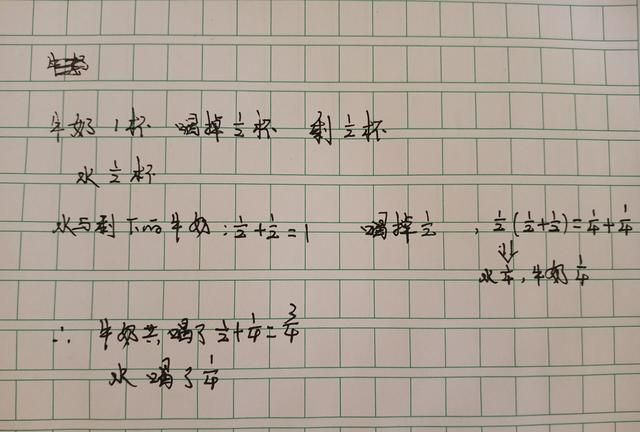 牛奶1杯 喝掉1/2杯 剩1/2杯
水1/2杯
水与剩下的牛奶：1/2+1/2=1 喝掉1/2，1/2(1/2+1/2)=1/4+1/4
⇓
水1/4，牛奶1/4
∴ 牛奶共喝了1/2+1/4=3/4
水喝了1/4